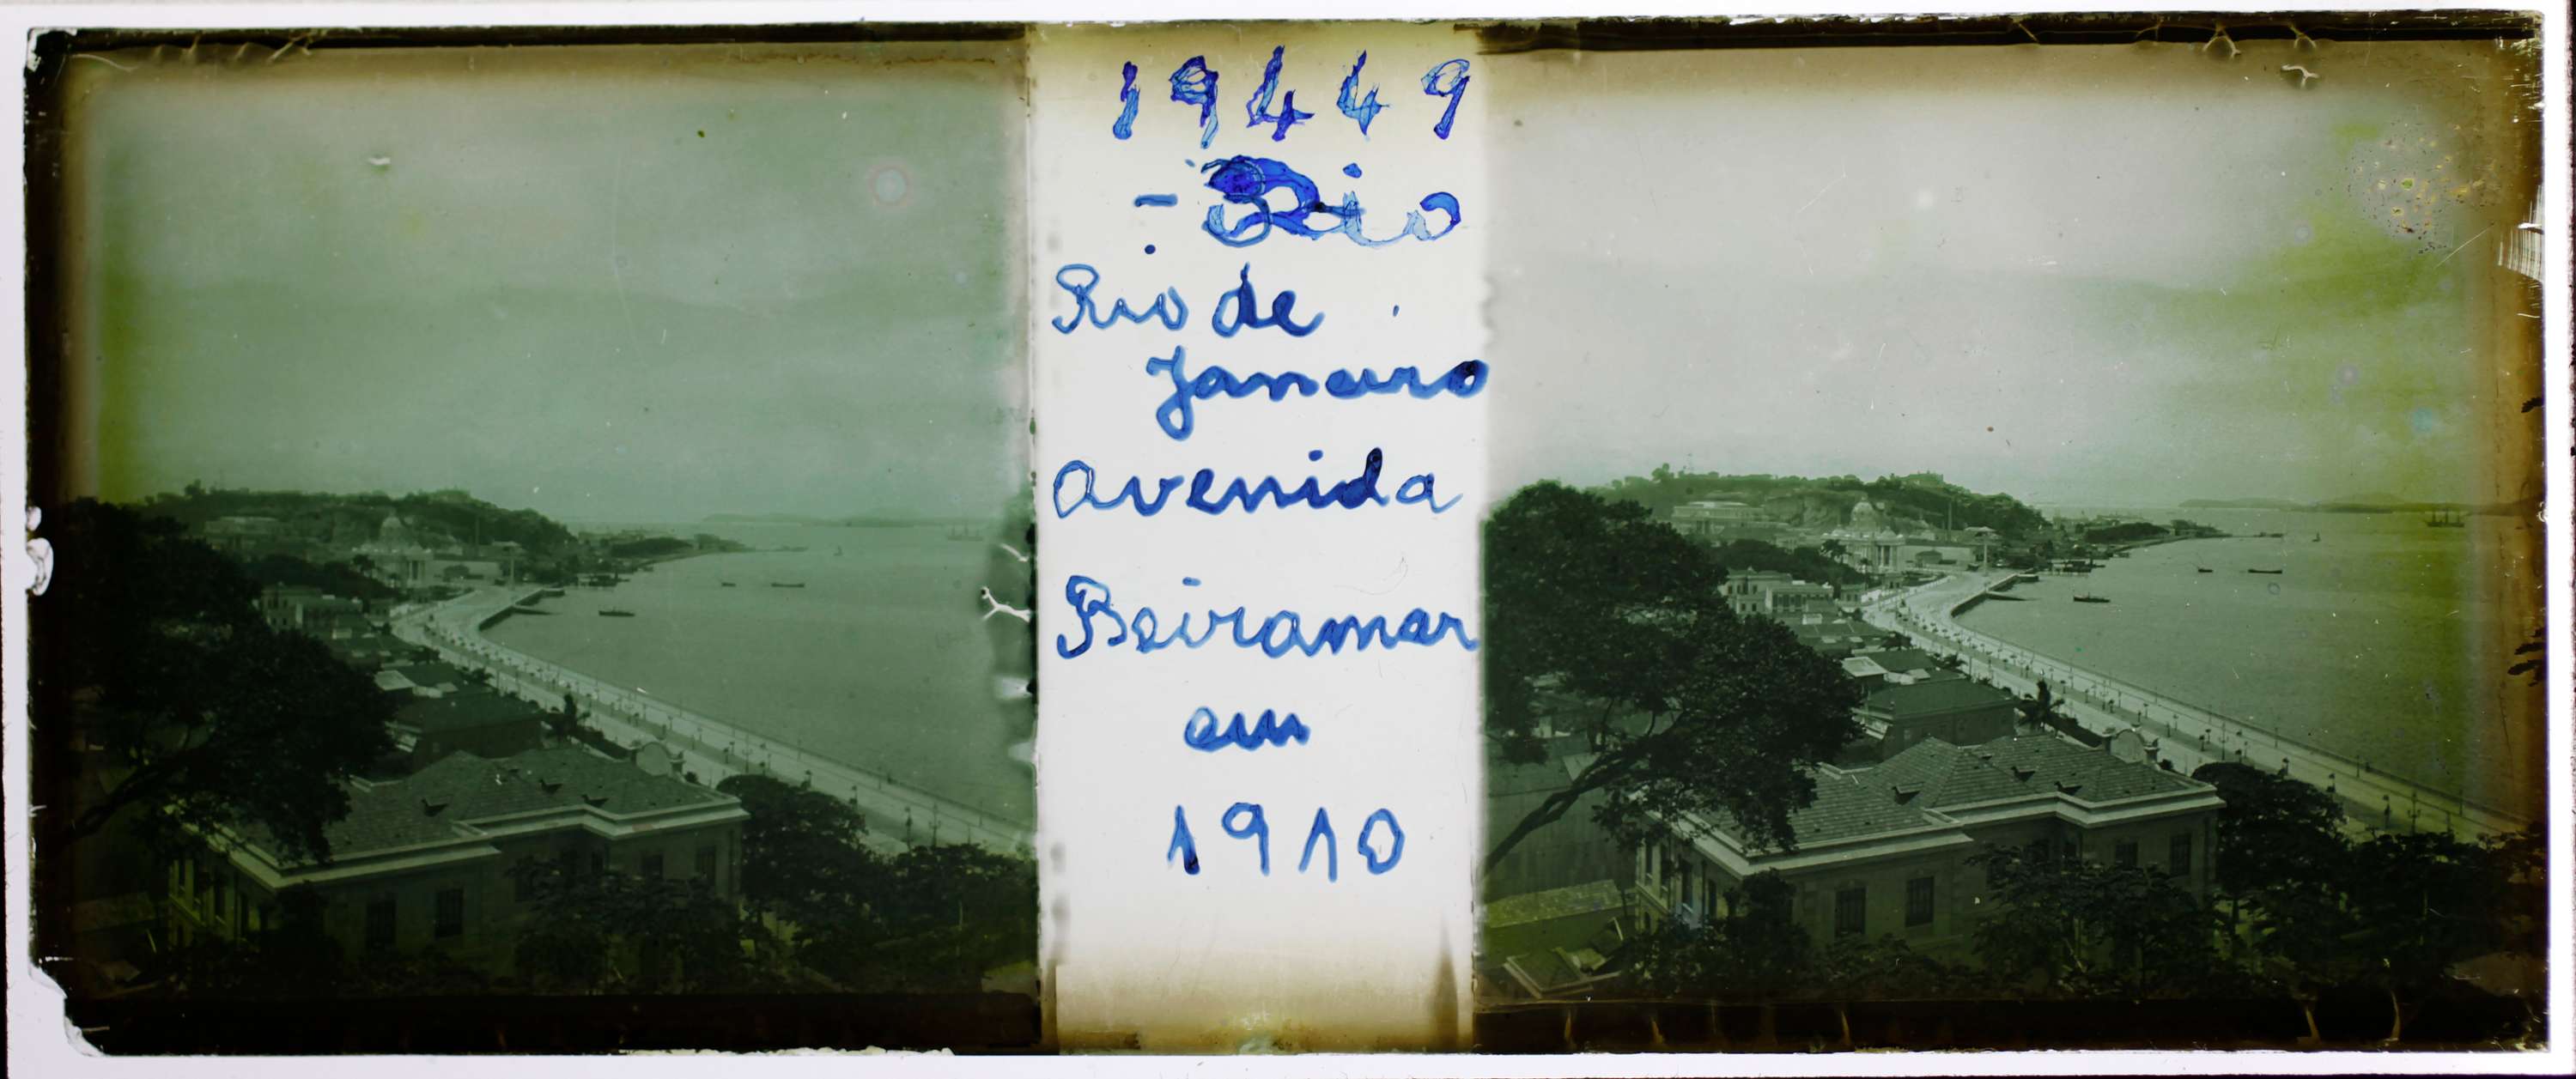 19449
- Rio
Rio de
Janeiro
Avenida
Beiramar
em
1910